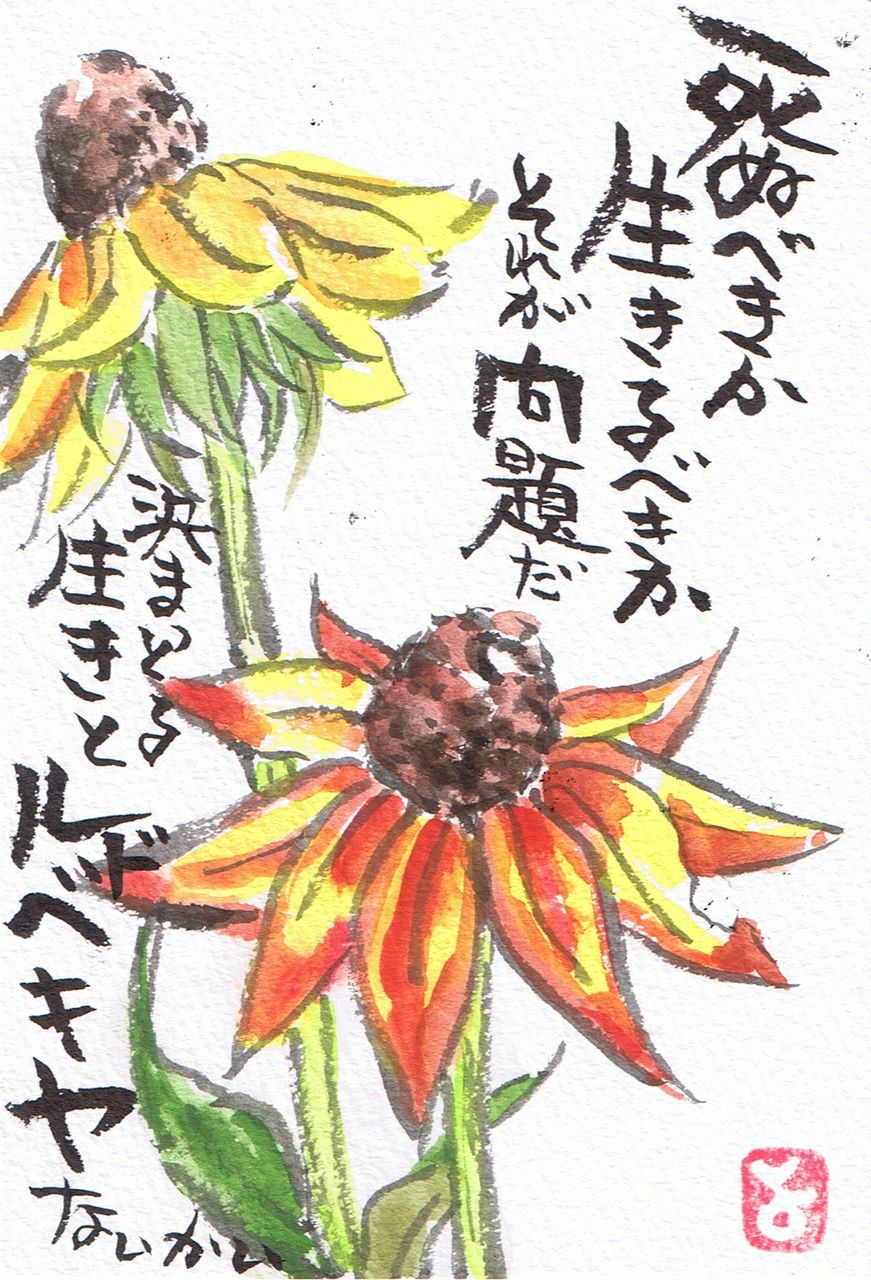 死ぬべきか
生きるべきか
それが問題だ
決まっとる
生きと
ルドベキヤ
ないかい